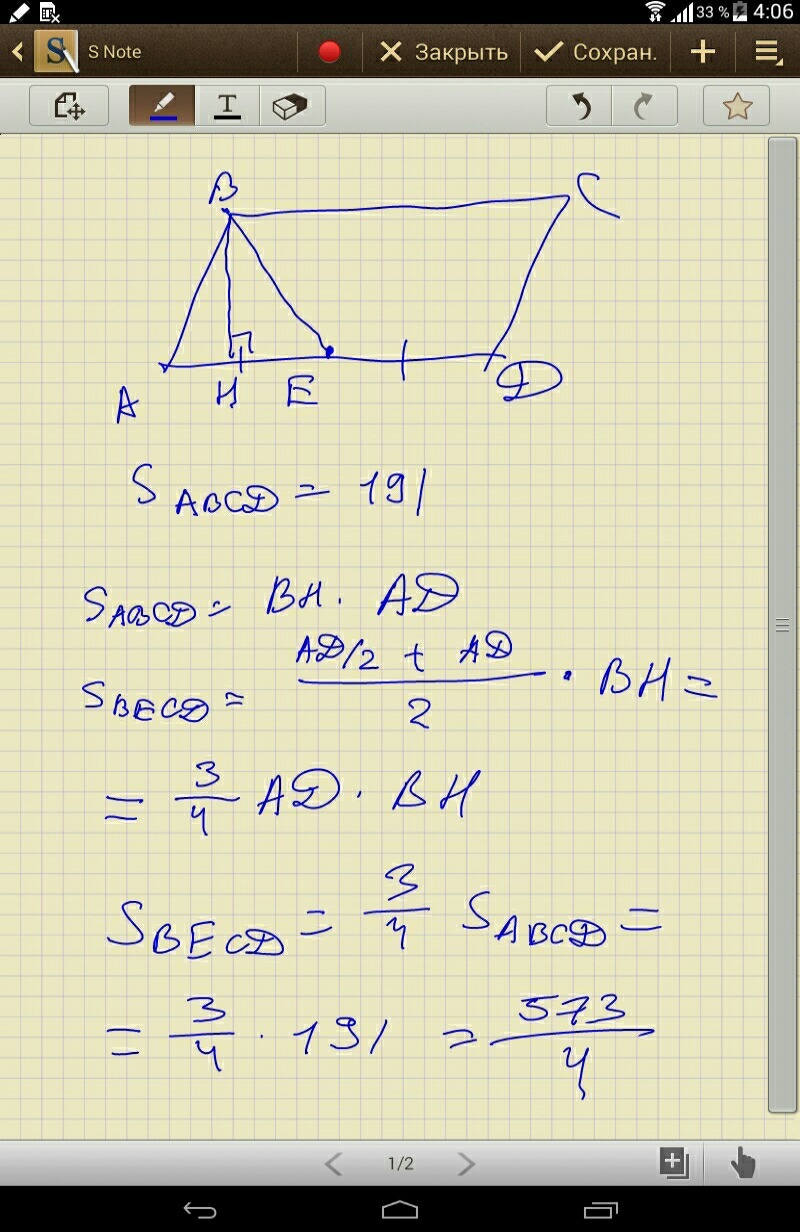 33 % 4:06
S S Note Закрыть Сохран.
T
B C
A H E D
S ABCD = 191
S ABCD = BH · AD
S BECD = (AD/2 + AD)/2 · BH =
= 3/4 AD · BH
S BECD = 3/4 S ABCD =
= 3/4 · 191 = 573/4
1/2